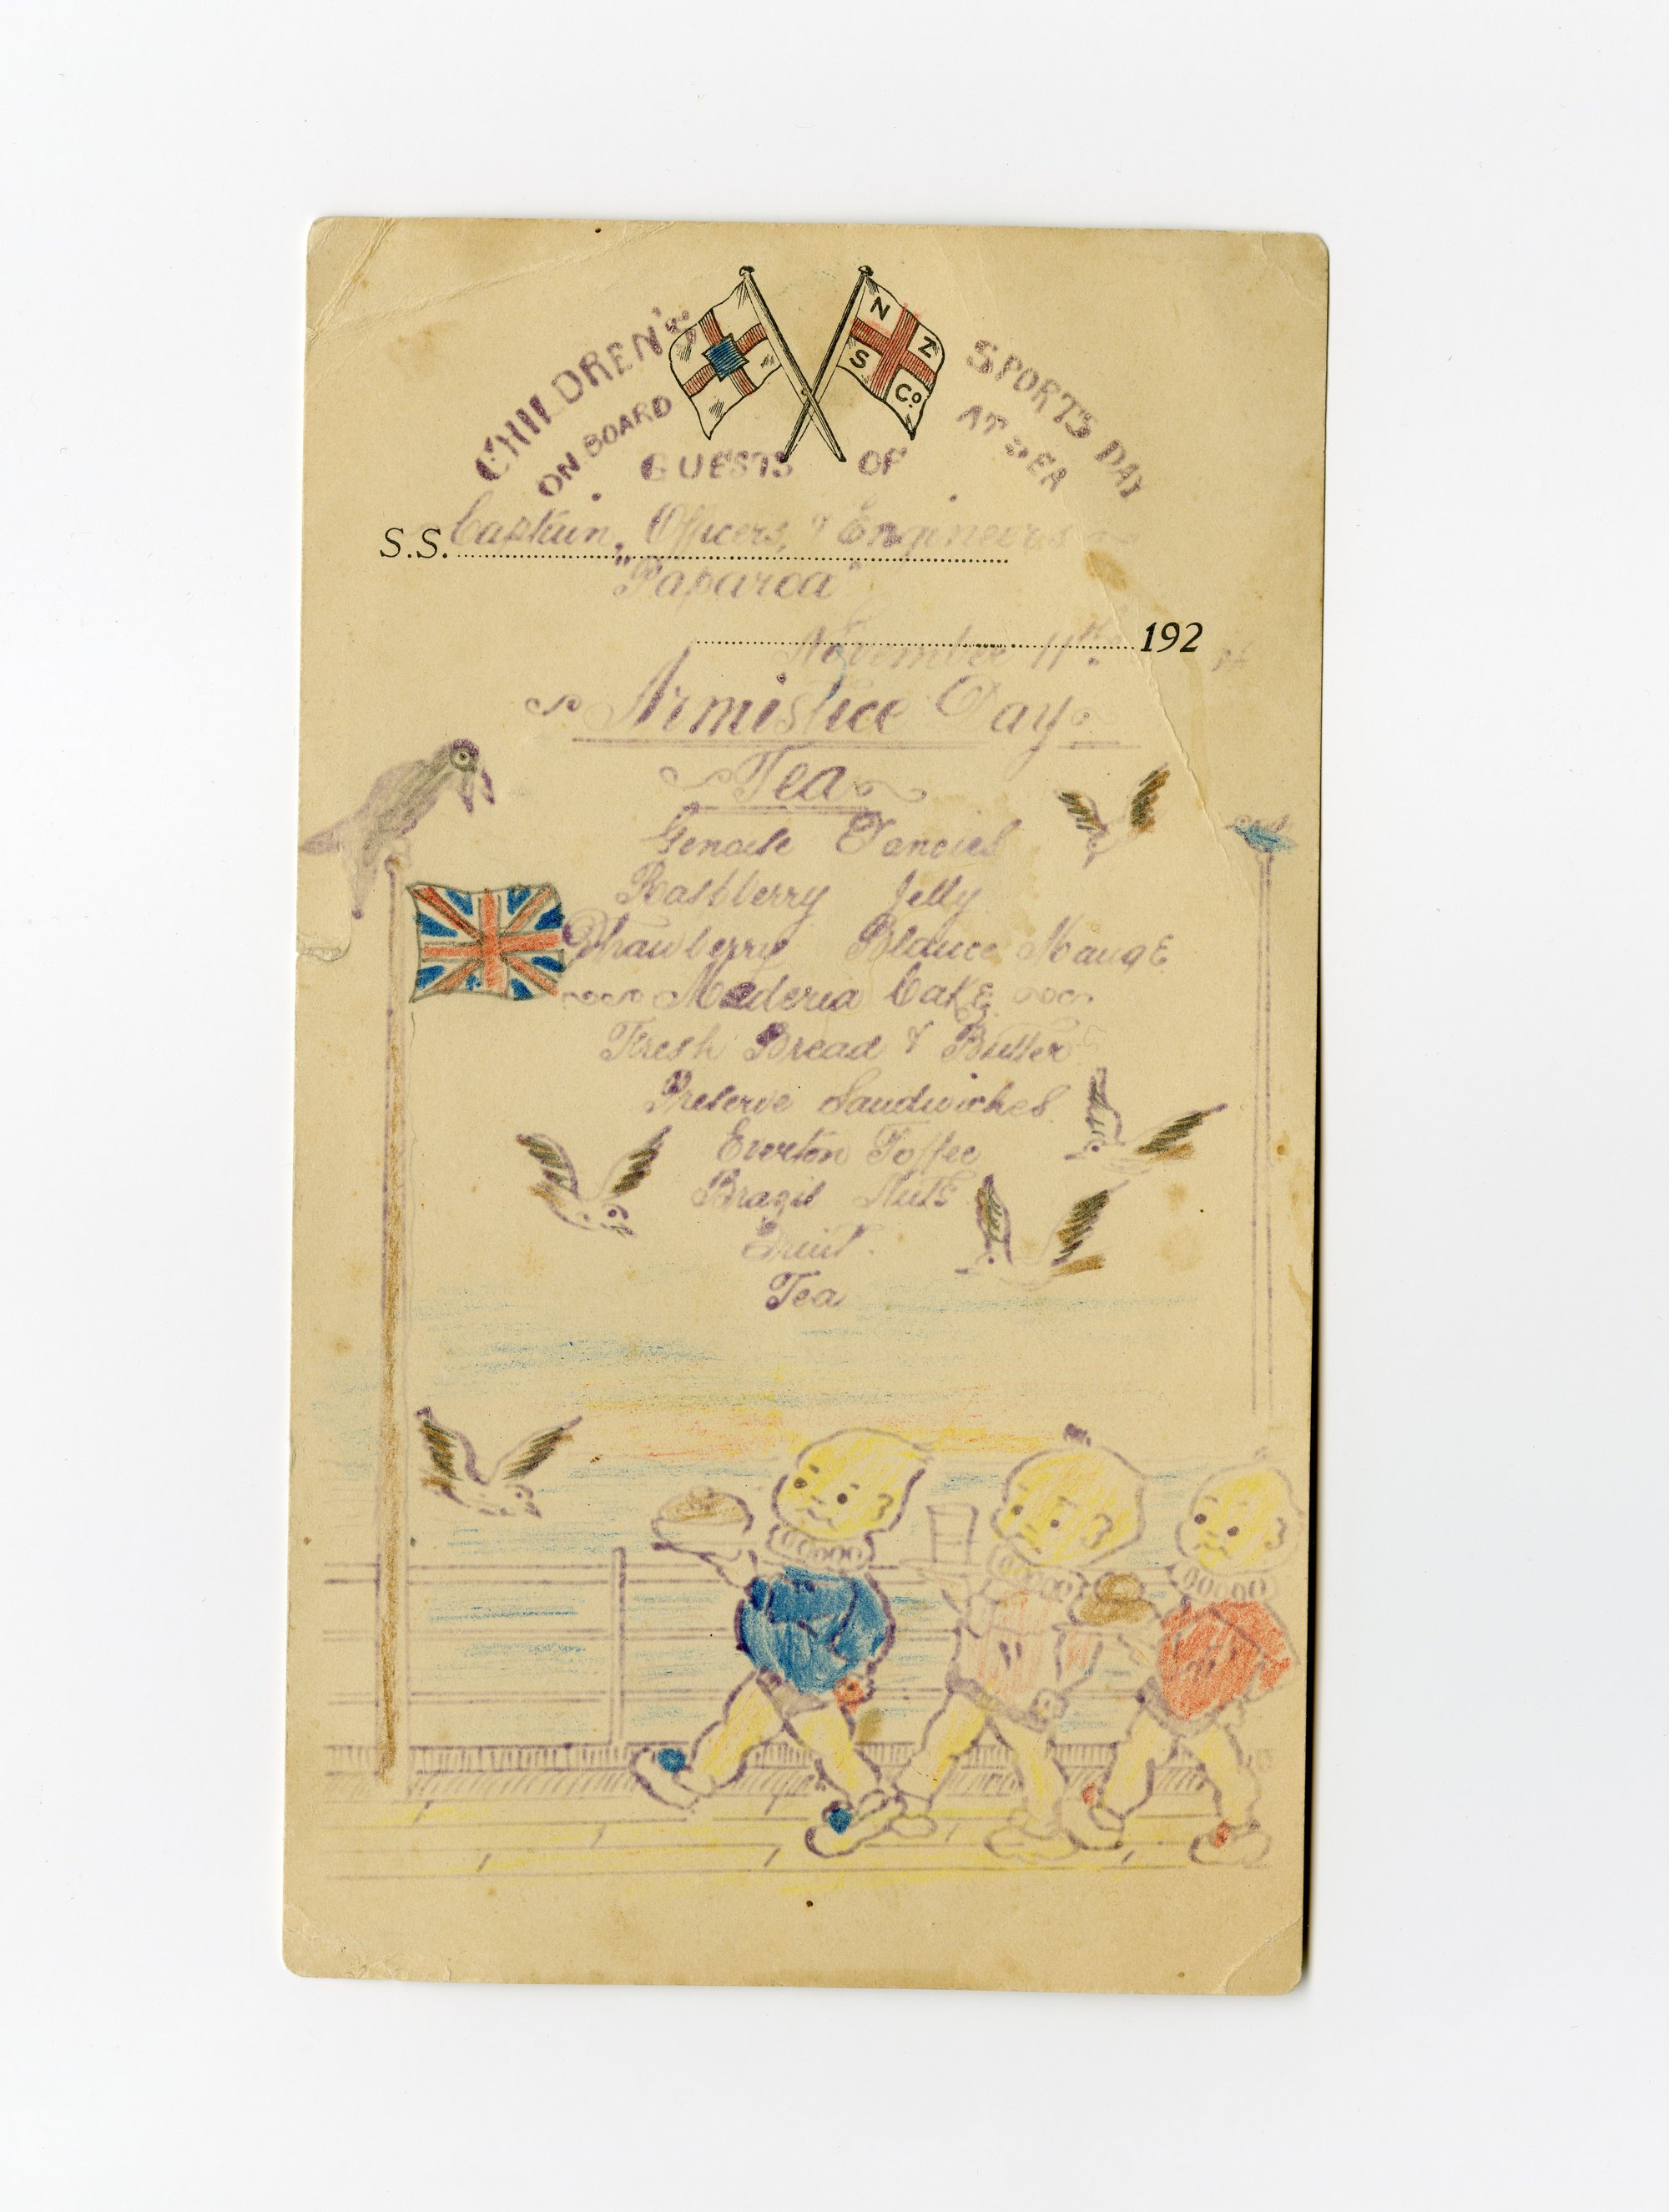 CHILDREN'S SPORTS DAY
ON BOARD AT SEA
N Z
S Co.
GUESTS OF
S.S. Captain, Officers, & Engineers
"Paparoa"
November 11th. 192
Armistice Day
Tea
Genoise Fancies
Raspberry Jelly
Strawberry Blance Mange
Maderia Cake
Fresh Bread & Butter
Preserve Sandwiches
Everton Toffee
Brazil Nuts
Fruit.
Tea